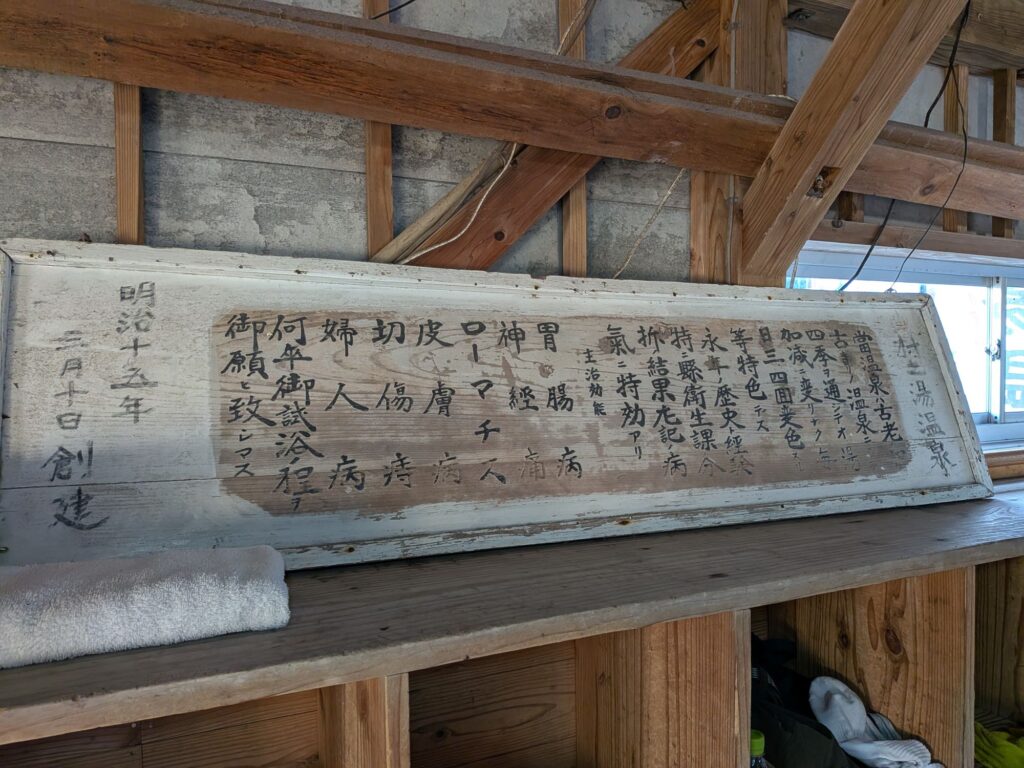 村之湯温泉
當温泉ハ古老
古キノ温泉ニ
四季ヲ通シテオ湯
加減ニ変リナク毎
日三四回変色ス
等特色テス
永年歴史ヲ経
特ニ縣衛生課分
折ノ結果左記ノ病
氣ニ特効アリ
主治効能
胃腸病
神經痛
ローマチス
皮膚病
切傷痔
婦人病
何卒御試浴程テ
御願ヒ致シマス
明治十五年
二月十日創建